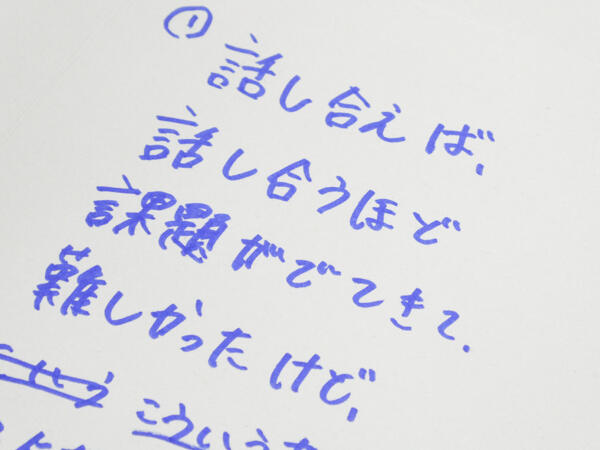 ①
話し合えば、
話し合うほど
課題がでてきて、
難しかったけど、
こういう